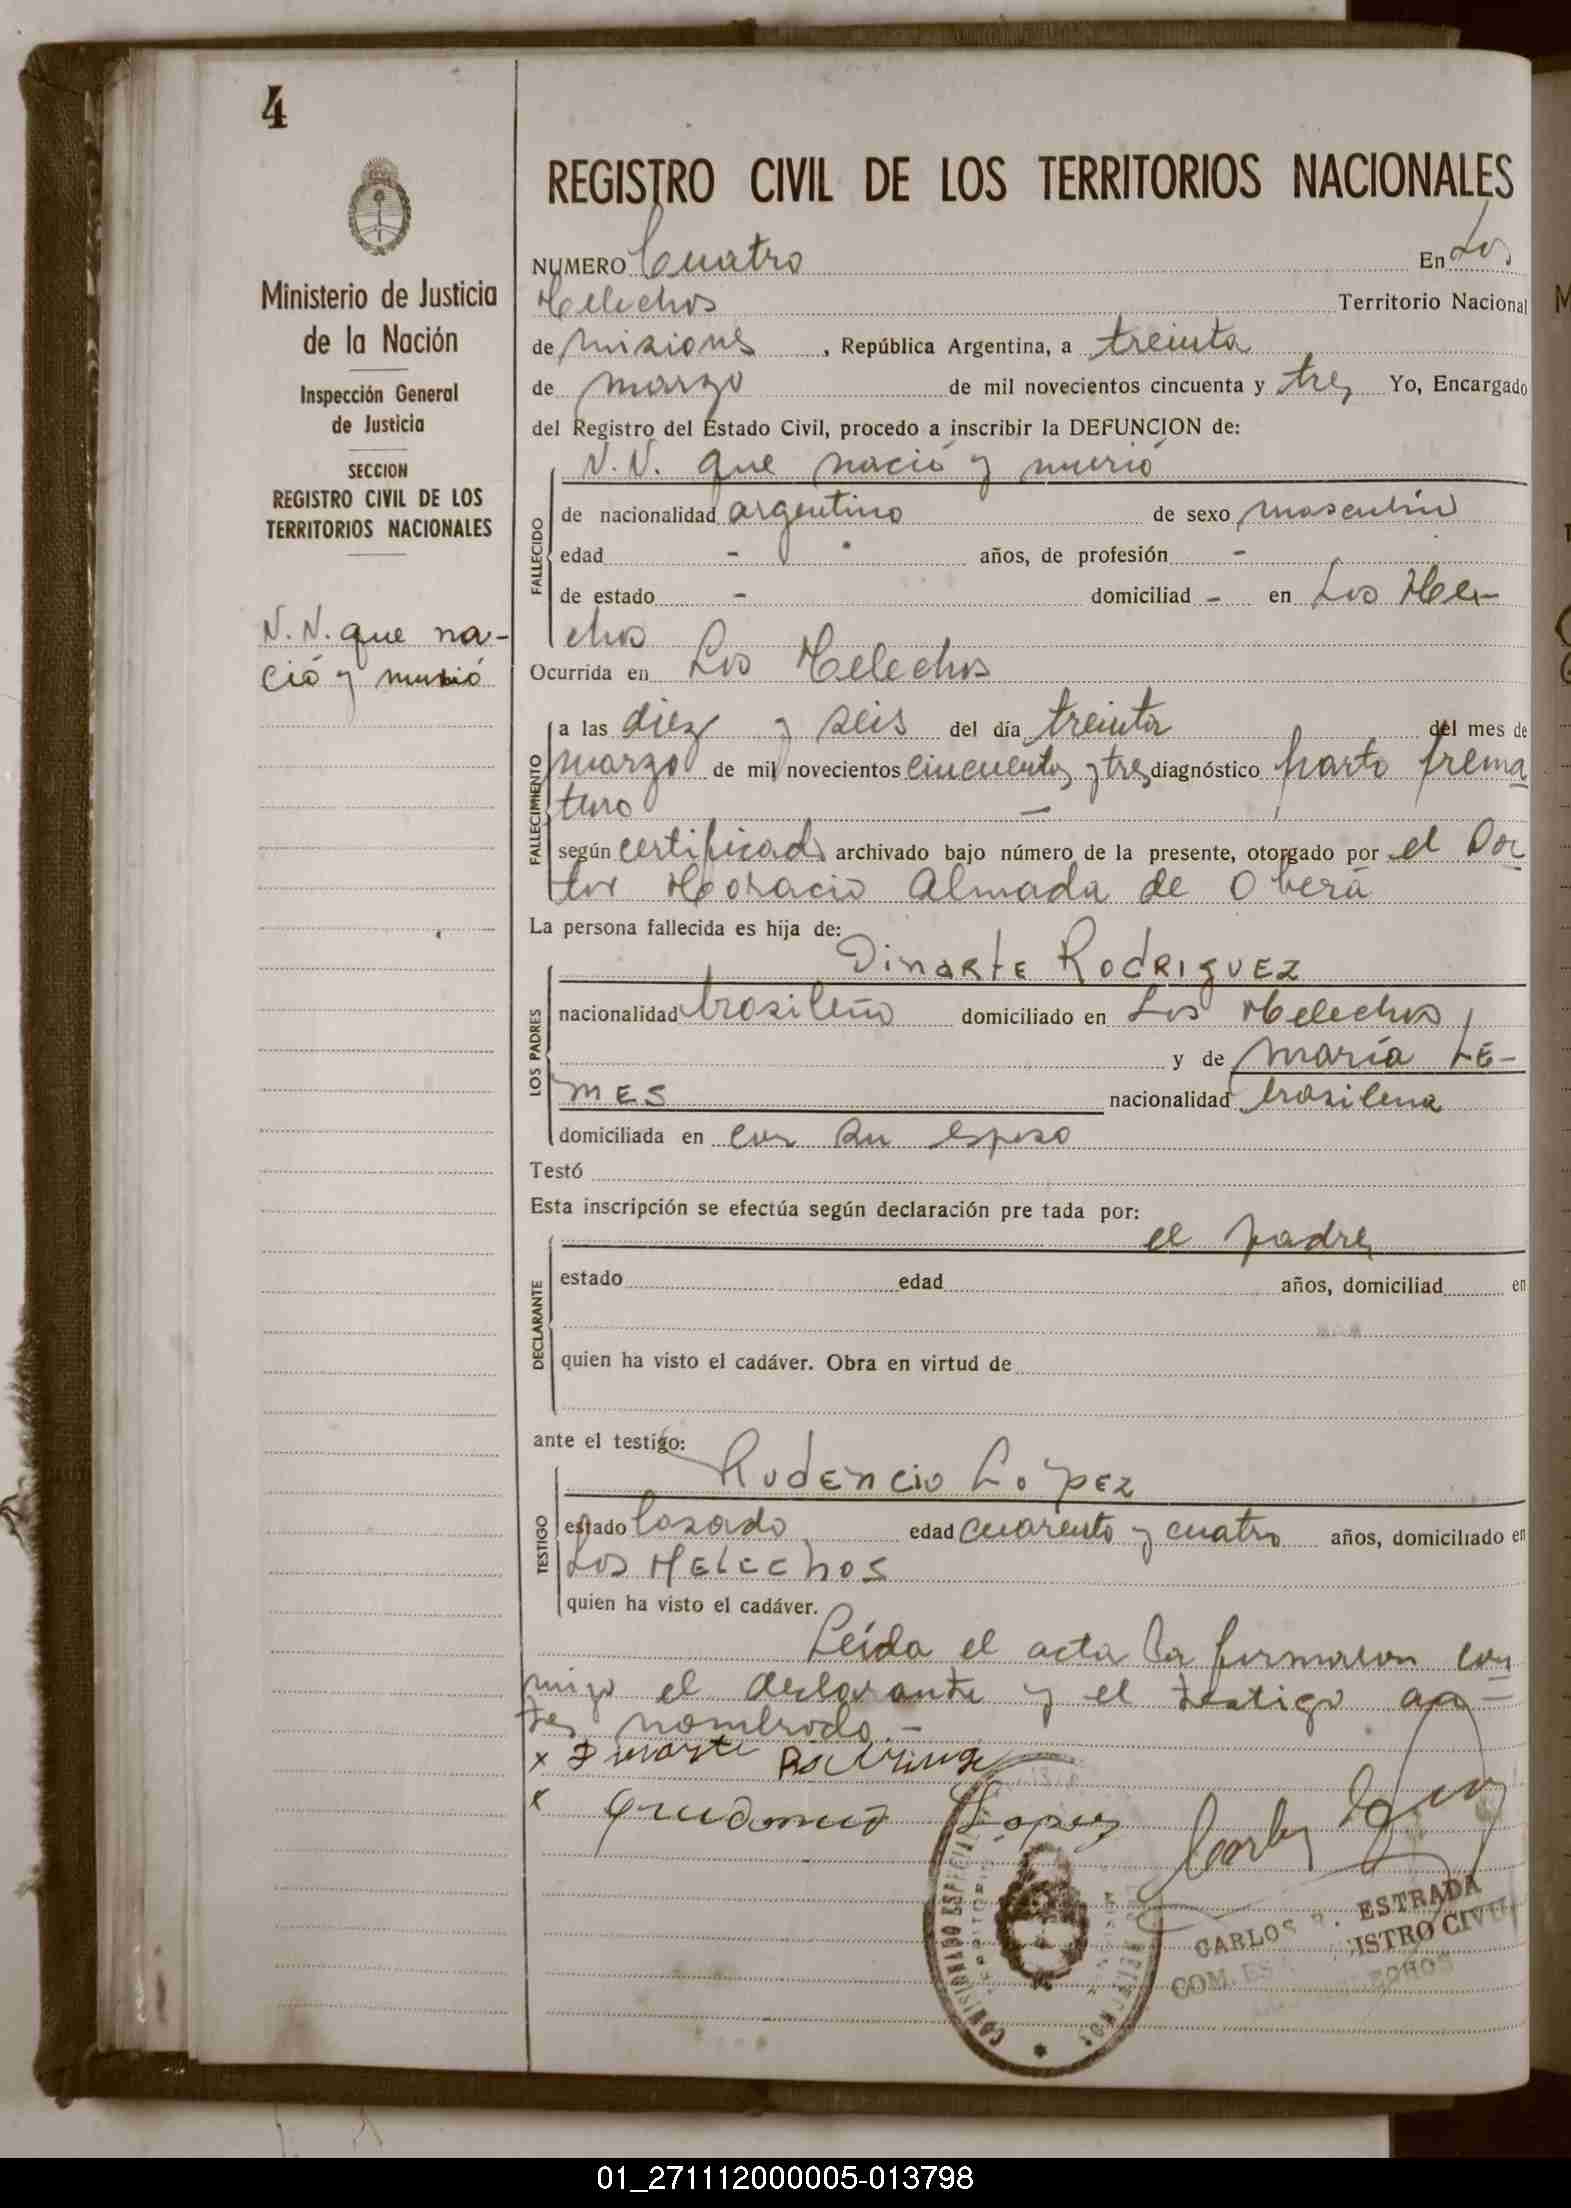 4
Ministerio de Justicia
de la Nación
Inspección General
de Justicia
SECCION
REGISTRO CIVIL DE LOS
TERRITORIOS NACIONALES
N. N. que na-
ció y murió
REGISTRO CIVIL DE LOS TERRITORIOS NACIONALES
NUMERO Cuatro En Los
Helechos Territorio Nacional
de misiones, República Argentina, a treinta
de marzo de mil novecientos cincuenta y tres Yo, Encargado
del Registro del Estado Civil, procedo a inscribir la DEFUNCION de:
N. N. que nació y murió
FALLECIDO
de nacionalidad argentino de sexo masculino
edad - años, de profesión -
de estado - domiciliad - en Los Hele-
chos
Ocurrida en Los Helechos
FALLECIMIENTO
a las diez y seis del día treinta del mes de
marzo de mil novecientos cincuenta y tres diagnóstico parto prema
turo -
según certificado archivado bajo número de la presente, otorgado por el Doc
tor Horacio Almada de Oberá
La persona fallecida es hija de:
LOS PADRES
Dinarte Rodriguez
nacionalidad brasileño domiciliado en Los Helechos
y de maría LE-
MES nacionalidad brasilena
domiciliada en con su esposo
Testó
Esta inscripción se efectúa según declaración pre tada por:
DECLARANTE
el padre
estado edad años, domiciliad en
quien ha visto el cadáver. Obra en virtud de
ante el testigo:
TESTIGO
Rudencio Lopez
estado casado edad cuarenta y cuatro años, domiciliado en
Los Helechos
quien ha visto el cadáver.
Leída el acta la firmaron con
migo el declarante y el testigo an-
tes nombrado. -
x Dinarte
x Lopez
COMISIONADO ESPECIAL
CARLOS ESTRADA
ISTRO CIVIL
COM. ES
01_271112000005-013798